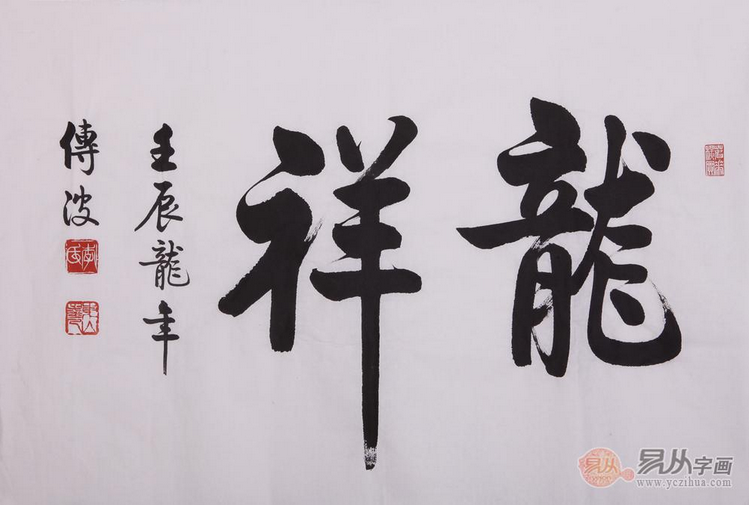 龍祥
壬辰龍年
傳波
李氏
易从字画
www.yczihua.com